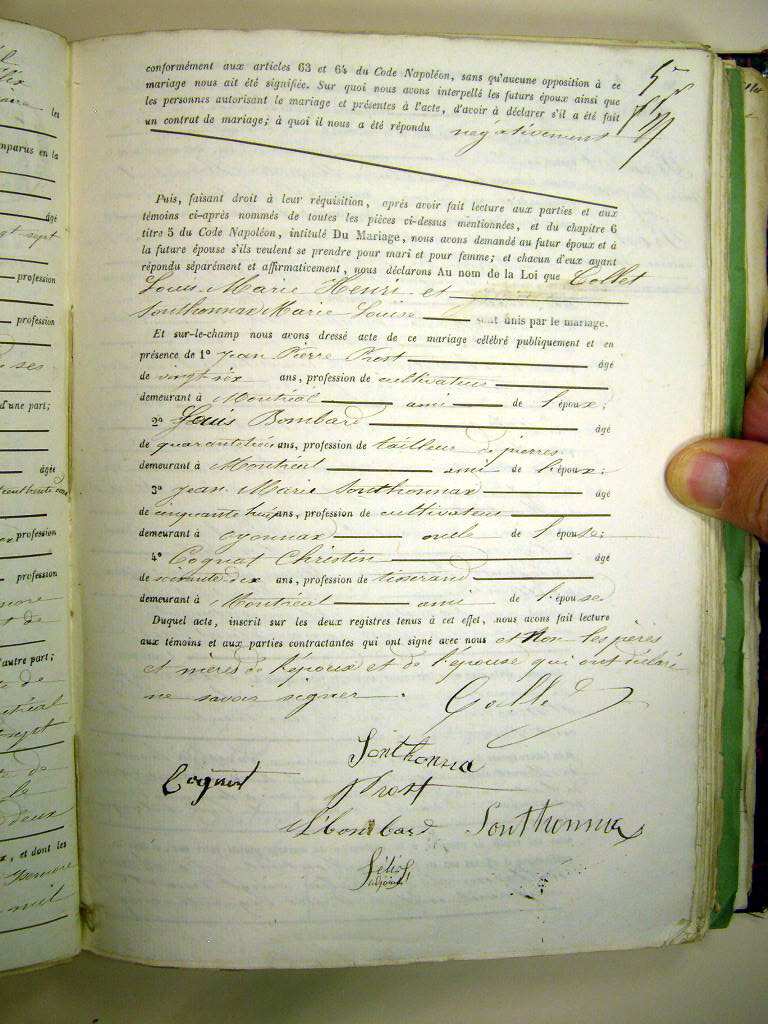 conformément aux articles 63 et 64 du Code Napoléon, sans qu'aucune opposition à ce
mariage nous ait été signifiée. Sur quoi nous avons interpellé les futurs époux ainsi que
les personnes autorisant le mariage et présentes à l'acte, d'avoir à déclarer s'il a été fait
un contrat de mariage; à quoi il nous a été répondu négativement
Puis, faisant droit à leur réquisition, après avoir fait lecture aux parties et aux
témoins ci-après nommés de toutes les pièces ci-dessus mentionnées, et du chapitre 6
titre 5 du Code Napoléon, intitulé Du Mariage, nous avons demandé au futur époux et à
la future épouse s'ils veulent se prendre pour mari et pour femme; et chacun d'eux ayant
répondu séparément et affirmativement, nous déclarons Au nom de la Loi que Collet
Louis Marie Henri et
Sonthonnax Marie Louise sont unis par le mariage.
Et sur-le-champ nous avons dressé acte de ce mariage célébré publiquement et en
présence de 1° Jean Pierre Prost âgé
de vingt six ans, profession de cultivateur
demeurant à Montréal ami de l'époux;
2° Louis Bombard âgé
de quarante ans, profession de tailleur de pierres
demeurant à Montréal ami de l'époux;
3° Jean Marie Sonthonnax âgé
de cinquante huit ans, profession de cultivateur
demeurant à oyonnax oncle de l'épouse;
4° Cognat Christin âgé
de soixante dix ans, profession de tisserand
demeurant à Montréal ami de l'épouse
Duquel acte, inscrit sur les deux registres tenus à cet effet, nous avons fait lecture
aux témoins et aux parties contractantes qui ont signé avec nous et non les pères
et mères de l'époux et de l'épouse qui ont déclaré
ne savoir signer.
Sonthonnax
Cognat
Prost
Bombard Sonthonnax
adjoint
les
comparus en la
âgé
profession
profession
d'une part;
âgée
profession
profession
d'autre part;
et dont les